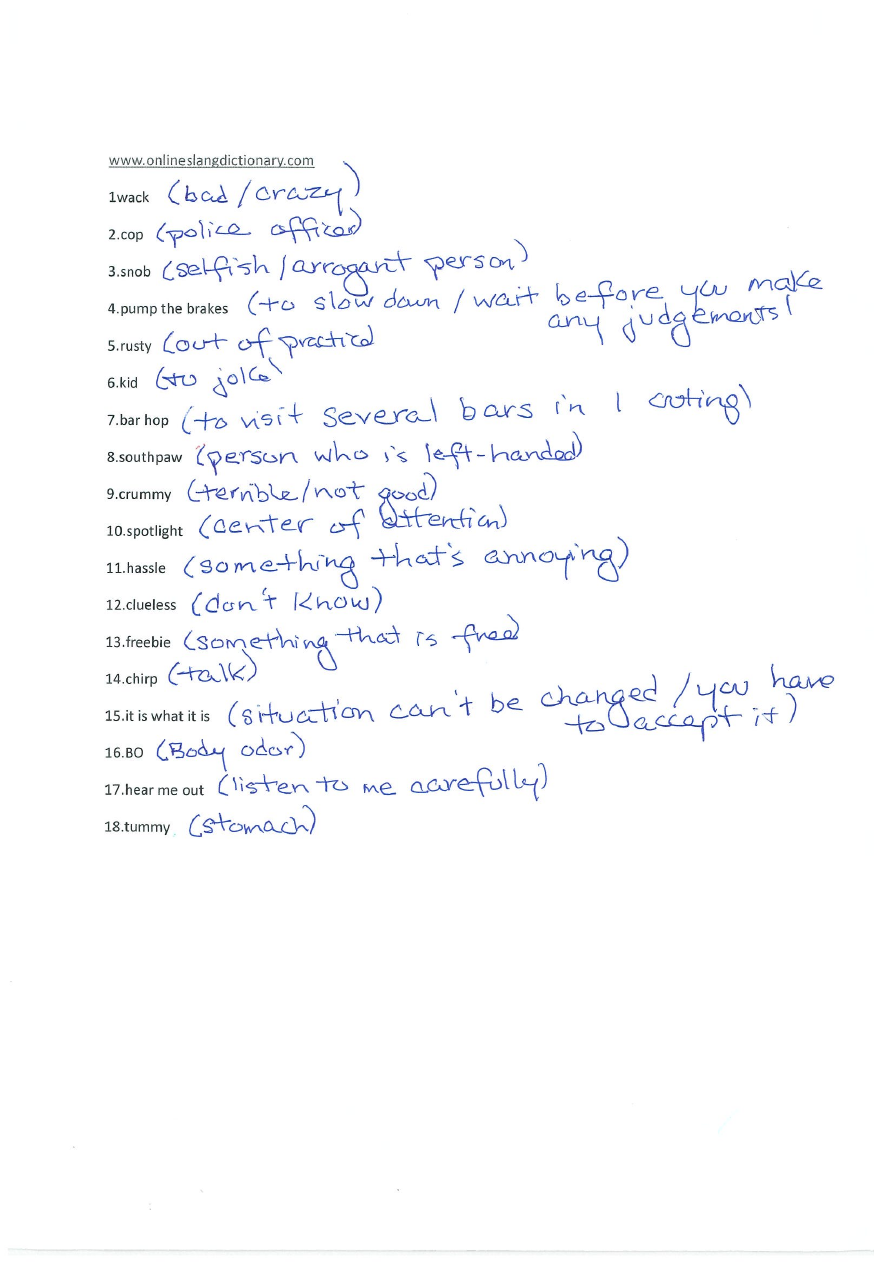 www.onlineslangdictionary.com
1wack (bad/crazy)
2.cop (police officer)
3.snob (selfish/arrogant person)
4.pump the brakes (to slow down/wait before you make
any judgements)
5.rusty (out of practice)
6.kid (to joke)
7.bar hop (to visit several bars in 1 outing)
8.southpaw (person who is left-handed)
9.crummy (terrible/not good)
10.spotlight (center of attention)
11.hassle (something that's annoying)
12.clueless (don't know)
13.freebie (something that is free)
14.chirp (talk)
15.it is what it is (situation can't be changed/you have
to accept it)
16.BO (Body odor)
17.hear me out (listen to me carefully)
18.tummy (stomach)